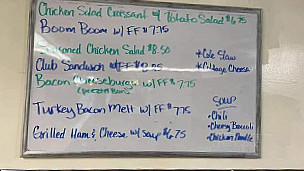 Chicken Salad Croissant w/ Potato Salad $6.75
Boom Boom w/ FF $7.75
Chicken Salad $8.50
Club Sandwich w/ FF
Bacon Cheeseburger w/ FF $7.75
Turkey Bacon Melt w/ FF $7.75
Grilled Ham & Cheese w/ Soup $6.75
• Cole Slaw
• Cottage Cheese
Soup
• Chili
• Cheesy Broccoli
• Chicken Noodle